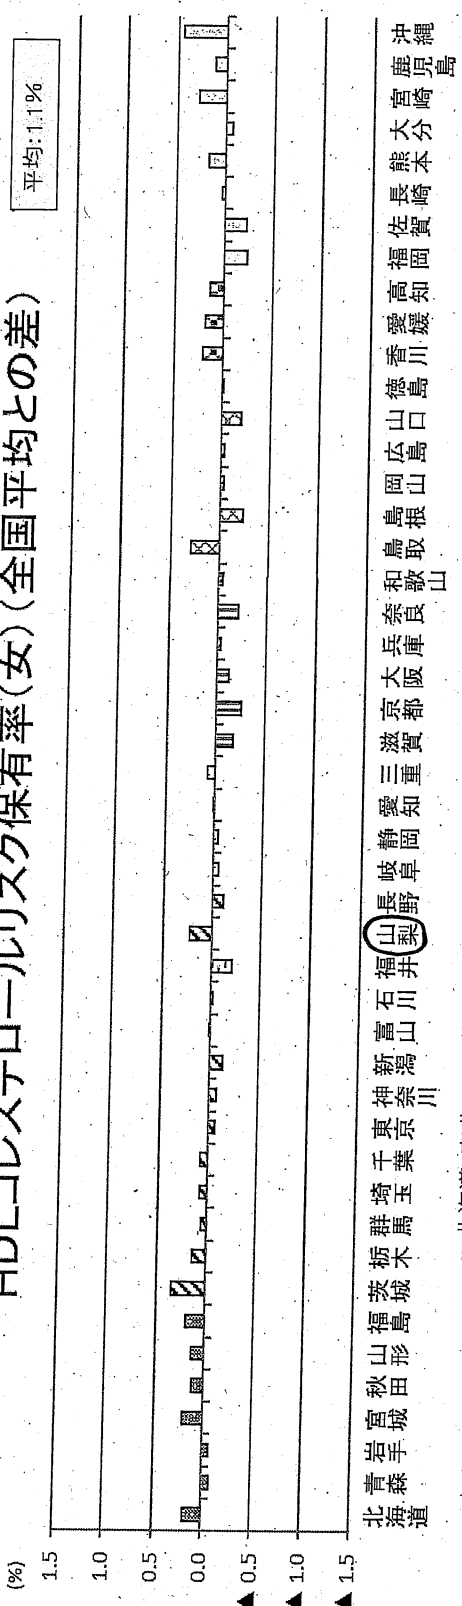 HDLコレステロールリスク保有率(女)(全国平均との差)
平均:1.1%
(%)
1.5
1.0
0.5
0.0
▲ 0.5
▲ 1.0
▲ 1.5
北海道
青森
岩手
宮城
秋田
山形
福島
茨城
栃木
群馬
埼玉
千葉
東京
神奈川
新潟
富山
石川
福井
山梨
長野
岐阜
静岡
愛知
三重
滋賀
京都
大阪
兵庫
奈良
和歌山
鳥取
島根
岡山
広島
山口
徳島
香川
愛媛
高知
福岡
佐賀
長崎
熊本
大分
宮崎
鹿児島
沖縄